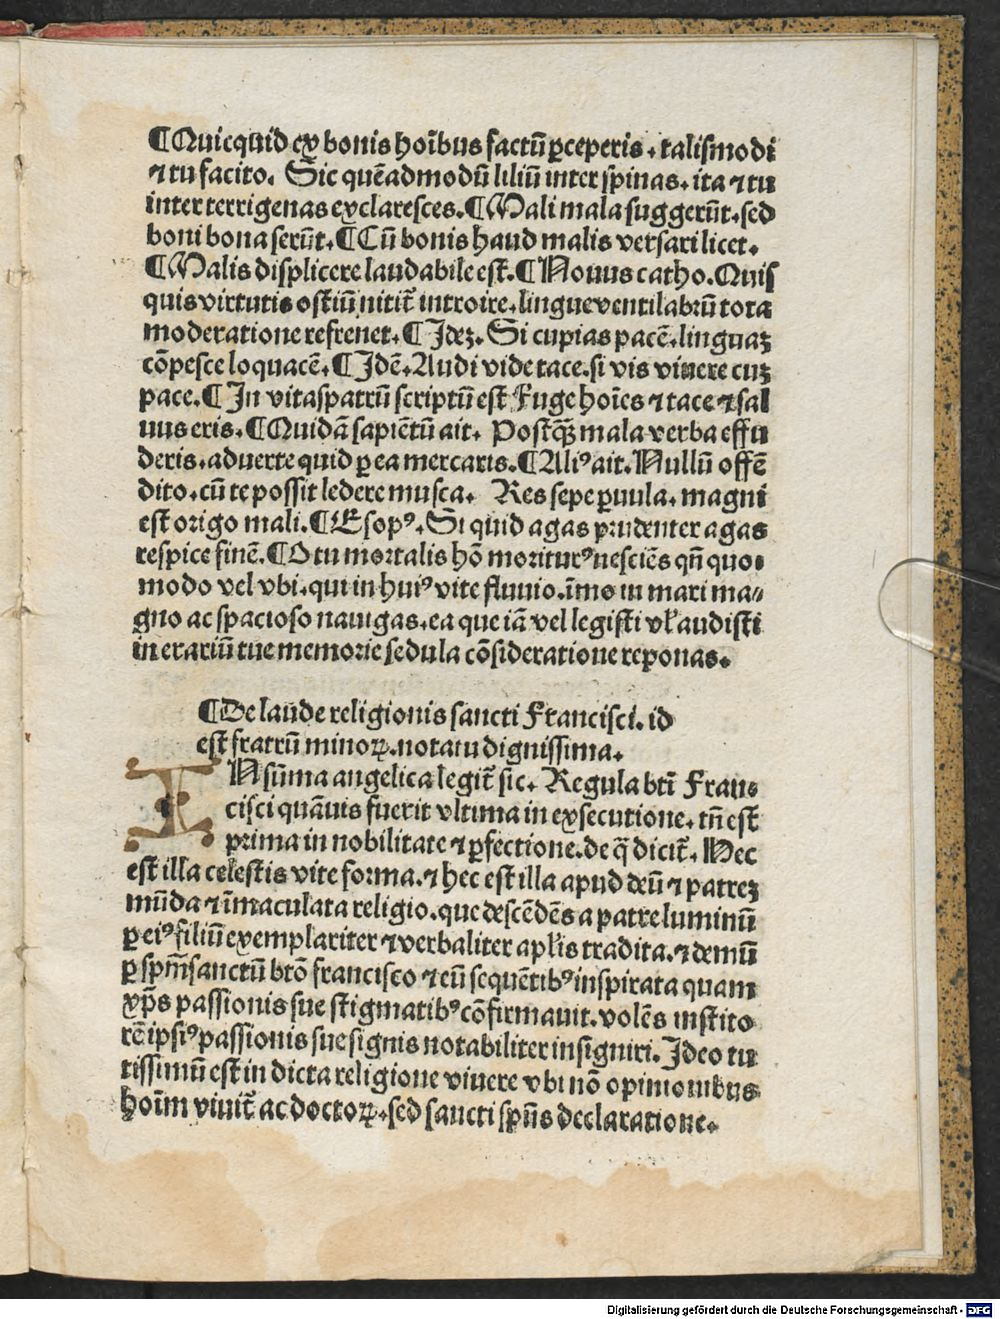 ¶Quicquid ex bonis hoı̄bus factū ꝑceperis. talismodi
⁊ tu facito. Sic quēadmodū liliū inter spinas. ita ⁊ tu
inter terrigenas exclaresces. ¶Mali mala suggerūt. sed
boni bona serūt. ¶Cū bonis haud malis versari licet.
¶Malis displicere laudabile est. ¶Nouus catho. Quis
quis virtutis ostiū nitit᷑ introire. lingue ventilabrū tota
moderatione refrenet. ¶Ideꝫ. Si cupias pacē. linguaꝫ
cōpesce loquacē. ¶Idē. Audi vide tace. si vis viuere cuꝫ
pace. ¶In vitaspatrū scriptū est Fuge hoı̄es ⁊ tace ⁊ sal
uus eris. ¶Quidā sapiētū ait. Postq̄ꝫ mala verba effu
deris. aduerte quid ꝑ ea mercaris. ¶Aliꝰ ait. Nullū offē
dito. cū te possit ledere musca. Res sepe ꝑuula. magni
est origo mali. ¶Esopꝰ. Si quid agas prudenter agas
respice finē. ¶O tu mortalis hō moriturꝰ nesciēs qn̄ quo⸗
modo vel vbi. qui in huiꝰ vite fluuio. īmo in mari ma⸗
gno ac spacioso nauigas. ea que iā vel legisti vł audisti
in erariū tue memorie sedula cōsideratione reponas.
¶De laude religionis sancti Francisci. id
est fratrū minoꝝ. notatu dignissima.
IN sūma angelica legit᷑ sic. Regula bt̄i Fran⸗
cisci quāuis fuerit vltima in exsecutione. tn̄ est
prima in nobilitate ⁊ ꝑfectione. de q̄ dicit᷑. Hec
est illa celestis vite forma. ⁊ hec est illa apud deū ⁊ patreꝫ
mūda ⁊ īmaculata religio. que descēdēs a patre luminū
ꝑ eiꝰ filiū exemplariter ⁊ verbaliter apl̄is tradita. ⁊ demū
ꝑ spm̄sanctū btō francisco ⁊ eū sequētibꝰ inspirata quam
xp̄s passionis sue stigmatibꝰ cōfirmauit. volēs instito
rē ipsiꝰ passionis sue signis notabiliter insigniri. Ideo tu
tissimū est in dicta religione viuere vbi nō opinionibus
hoı̄m viuit᷑ ac doctoꝝ. sed sancti spūs declaratione.
Digitalisierung gefördert durch die Deutsche Forschungsgemeinschaft - DFG